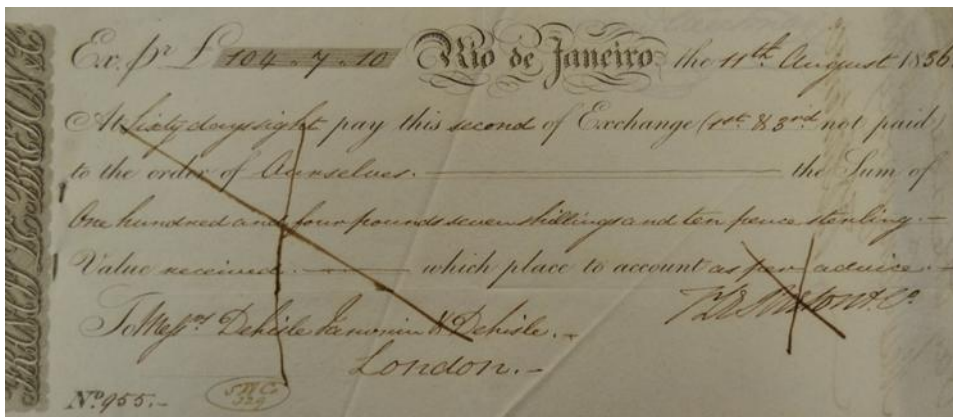 Ex. pr £ 104.7.10 Rio de Janeiro, the 11th August 1836.
At Sixty days sight pay this second of Exchange (1st. & 3rd. not paid)
to the order of Ourselves. the Sum of
One hundred and four pounds seven shillings and ten pence sterling.-
Value received. which place to account as per advice.-
To Messrs Delisle Janvrin & Delisle.-
London.-
No. 955.-